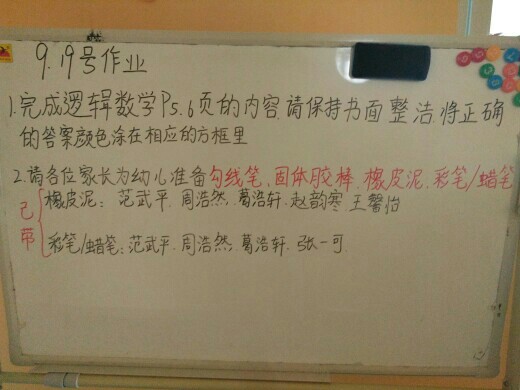 9.19号作业
1.完成逻辑数学P5.6页的内容,请保持书面整洁,将正确
的答案颜色涂在相应的方框里
2.请各位家长为幼儿准备勾线笔、固体胶棒、橡皮泥、彩笔/蜡笔
已带
橡皮泥：范武平、周浩然、葛浩轩、赵韵寒、王馨怡
彩笔/蜡笔：范武平、周浩然、葛浩轩、张一可